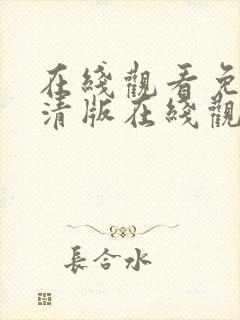 在綫觀看免
清版在綫觀
長合水